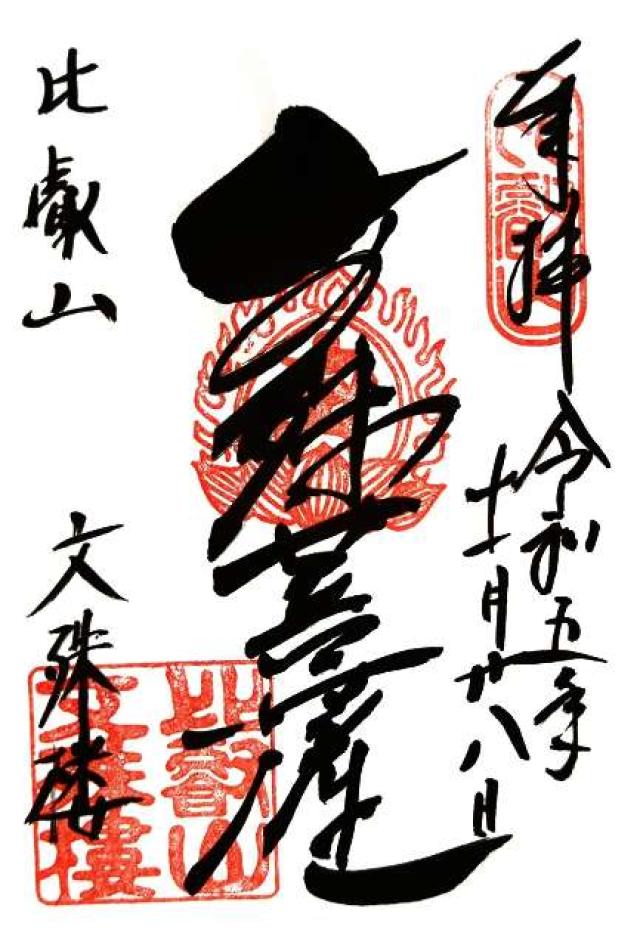 奉拝
令和五年
十一月廿八日
文殊菩薩
比叡山
文殊楼
比叡山
文殊樓